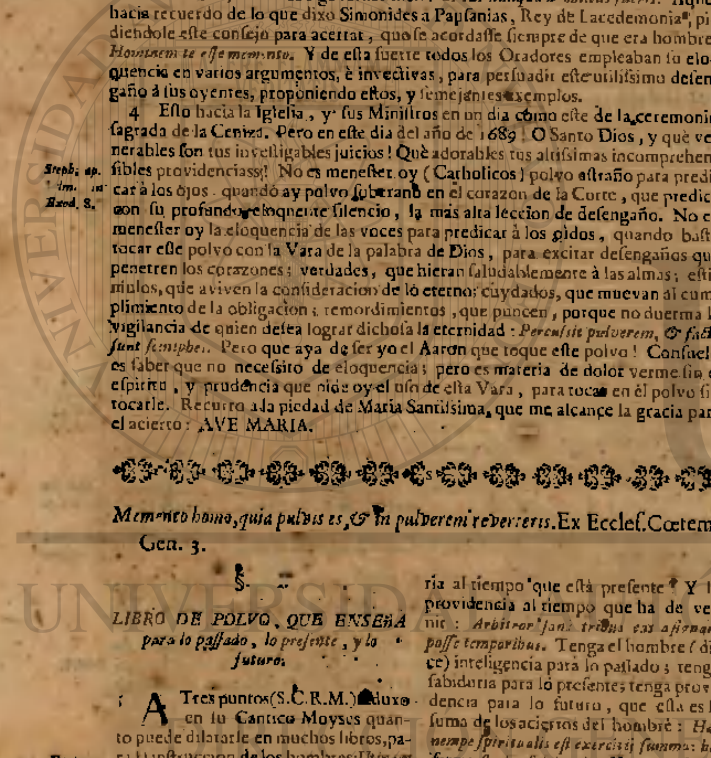 hacia recuerdo de lo que dixo Simonides a Papsanias, Rey de Lacedemonia, pi
diendole este consejo para acertar, que se acordasse siempre de que era hombre
Hominem te esse memento. Y de esta suerte todos los Oradores empleaban su elo
quencia en varios argumentos, è invectivas, para persuadir este utilissimo desen
gaño à sus oyentes, proponiendo estos, y semejantes exemplos.
4 Esto hacia la Iglesia, y sus Ministros en un dia como este de la ceremonia
sagrada de la Ceniza. Pero en este dia del año de 1689! O Santo Dios, y què ve
nerables son tus investigables juicios! Què adorables tus altissimas incomprehen
sibles providencias! No es menester oy (Catholicos) polvo estraño para predi
Steph. ap.
car à los ojos quando ay polvo soberano en el corazon de la Corte, que predic
Exod. 8.
con su profundo, eloquente silencio, la mas alta leccion de desengaño. No e
menester oy la eloquencia de las voces para predicar à los oidos, quando bast
tocar esse polvo con la Vara de la palabra de Dios, para excitar desengaños qu
penetren los corazones; verdades, que hieran saludablemente à las almas; esti
mulos, que aviven la consideracion de lo eterno; cuydados, que muevan al cum
plimiento de la obligacion; remordimientos, que puncen, porque no duerma l
vigilancia de quien desea lograr dichosa la eternidad: Percussit pulverem, & fact
sunt sciniphes. Pero que aya de ser yo el Aaron que toque este polvo! Consuel
es saber que no necessito de eloquencia; pero es materia de dolor verme sin e
espiritu, y prudencia que pide oy el uso de esta Vara, para tocar en èl polvo si
tocarle. Recurro a la piedad de Maria Santissima, que me alcance la gracia par
el acierto: AVE MARIA.
Memento homo, quia pulvis es, & in pulverem reverteris. Ex Eccles. Cœtem
Gen. 3.
§.
LIBRO DE POLVO, QUE ENSEÑA
para lo passado, lo presente, y lo
futuro.
A Tres puntos (S.C.R.M.) reduxo
en su Cantico Moyses quan-
to puede dilatarle en muchos libros, pa-
de los hombres:
ria al tiempo que està presente? Y l
providencia al tiempo que ha de ve
nir: Arbitror jam tribus eas assignar
posse temporibus. Tenga el hombre (di
ce) inteligencia para lo passado; teng
sabiduria para lo presente; tenga prov
dencia para lo futuro, que esta es l
suma de los aciertos del hombre: H
nempe spiritualis est exercitij summa: h
UNIVERSIDA